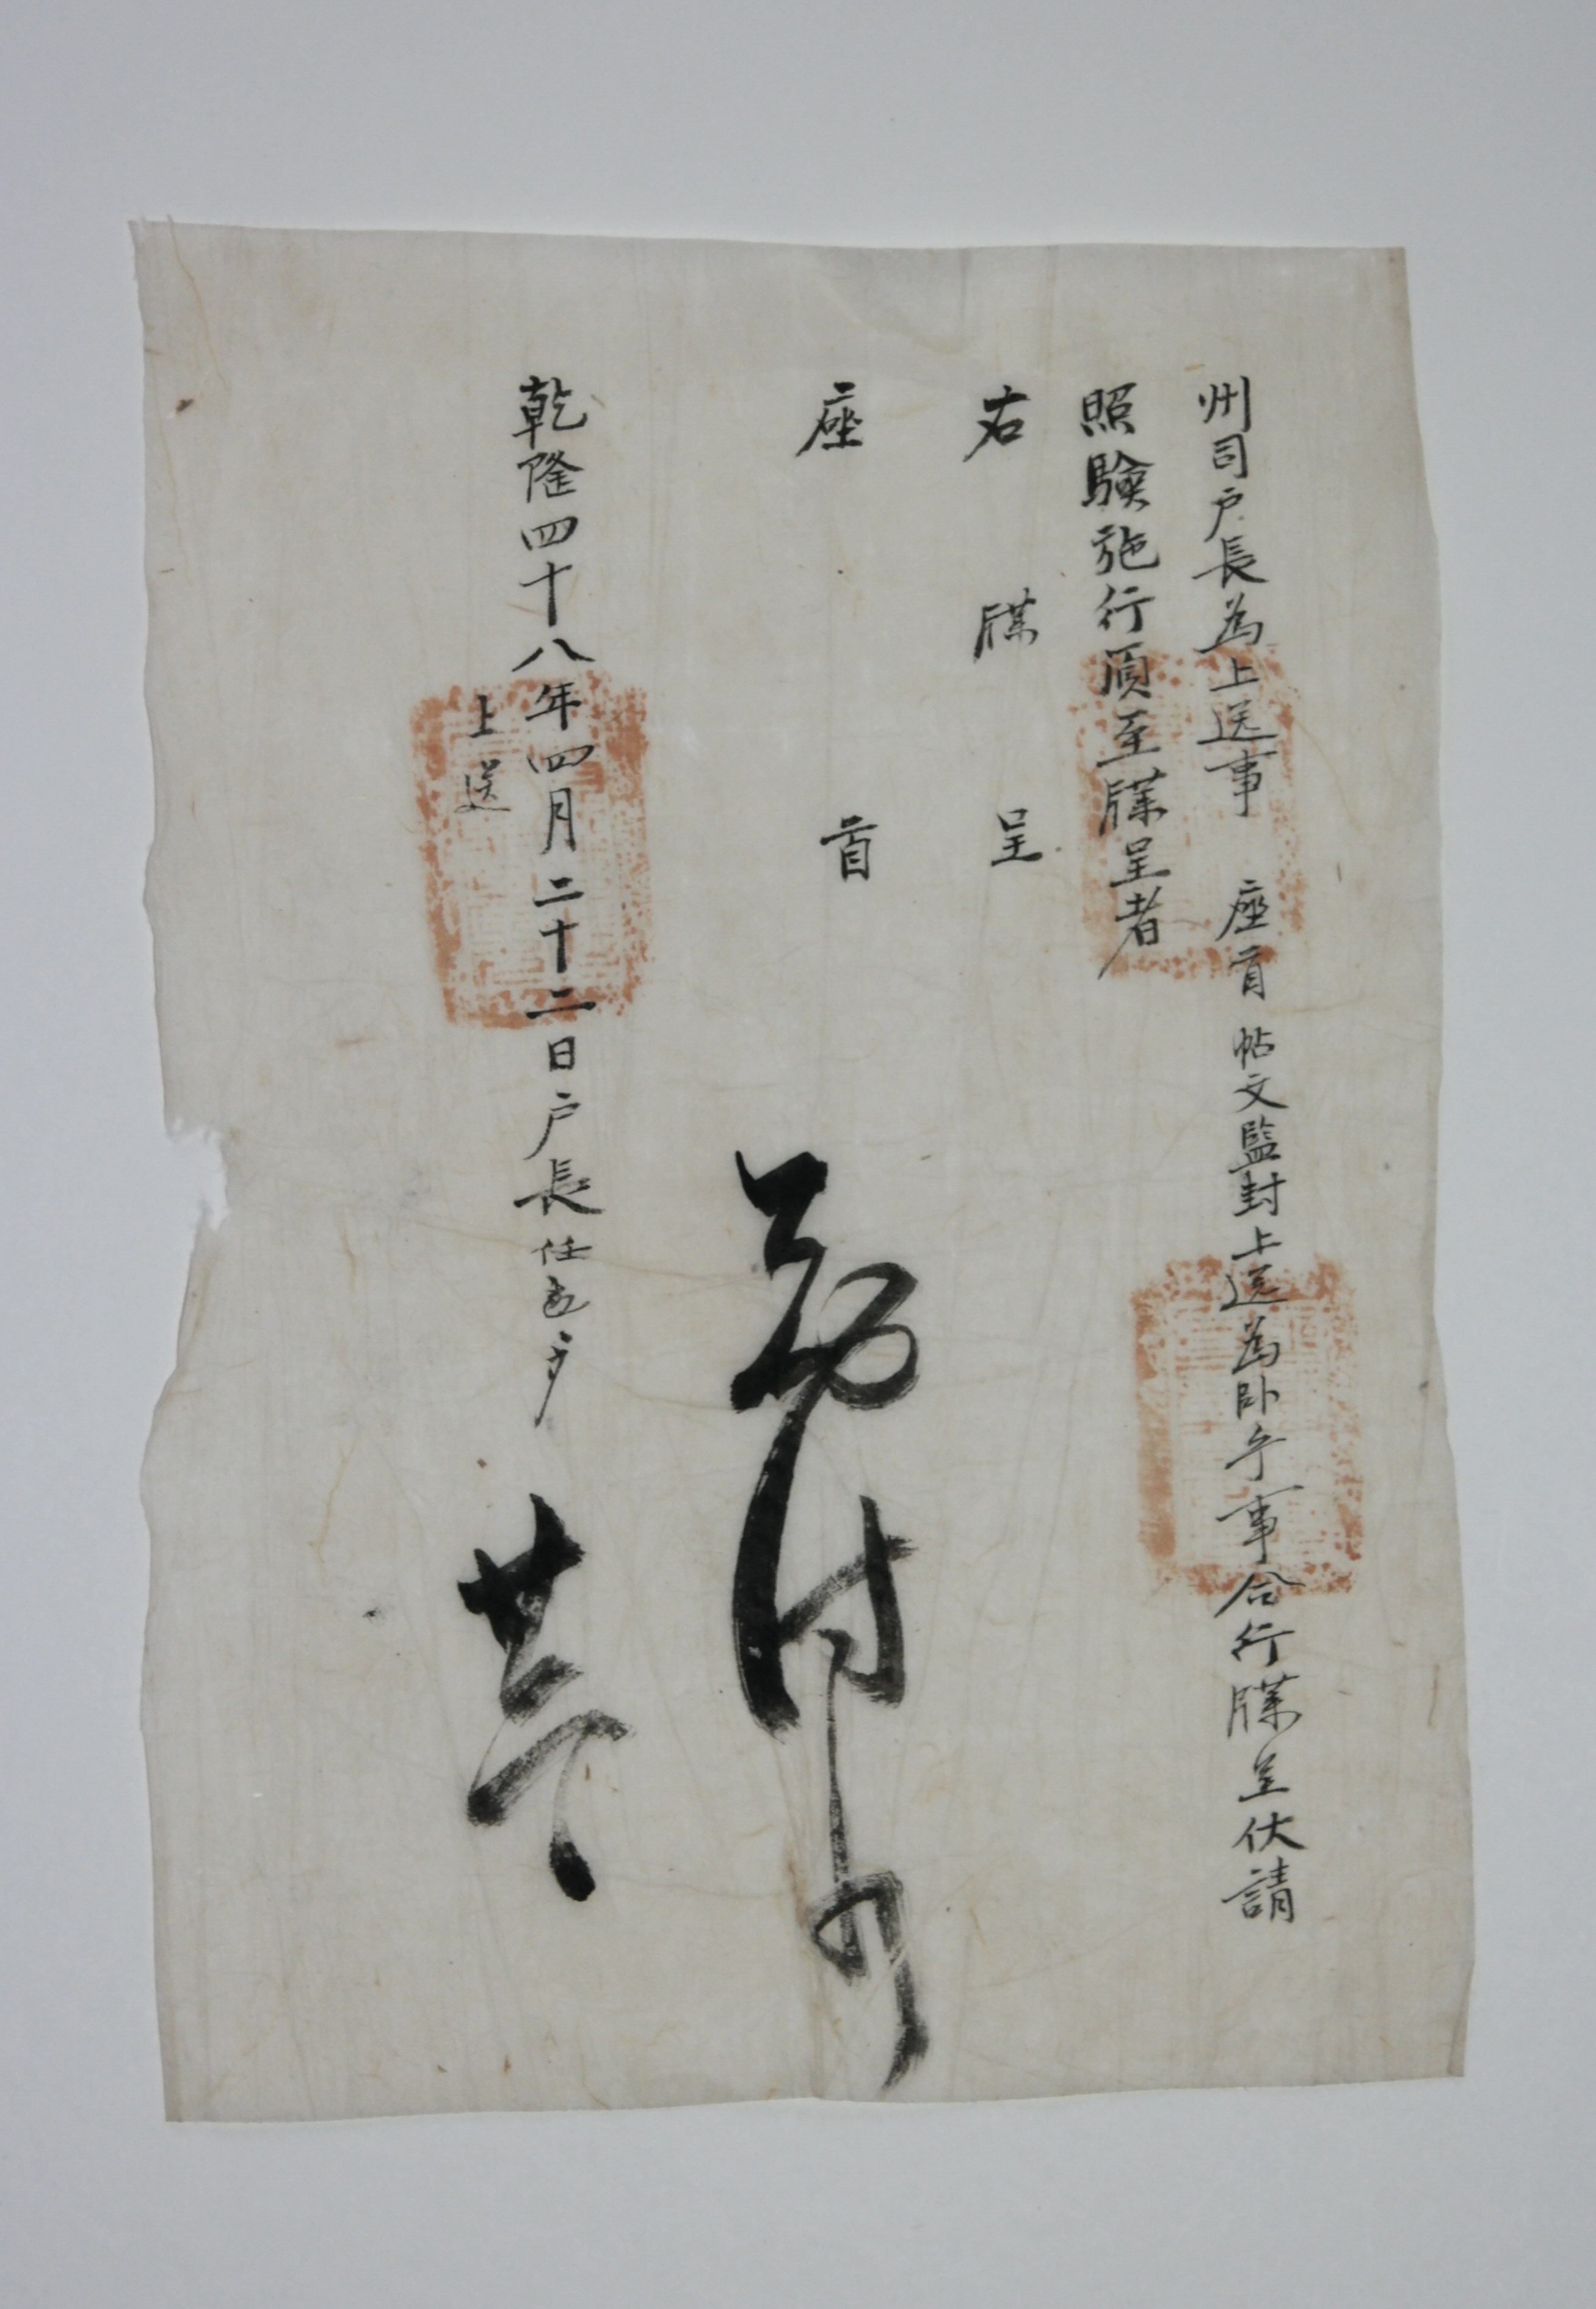 州司户長為上送事 座首帖文監封上送為卧乎事合行牒呈伏請
照驗施行湏至牒呈者
右 牒 呈
座 首
乾隆四十八年四月二十二日户長任
上送